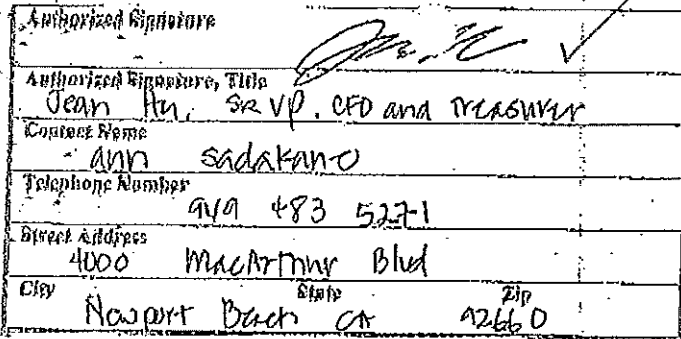 Authorized Signature
Authorized Signature, Title
Jean Hu, SR VP, CFO and Treasurer
Contact Name
ann sadakane
Telephone Number
949 483 5271
Street Address
4000 MacArthur Blvd
City State Zip
Newport Beach CA 92660